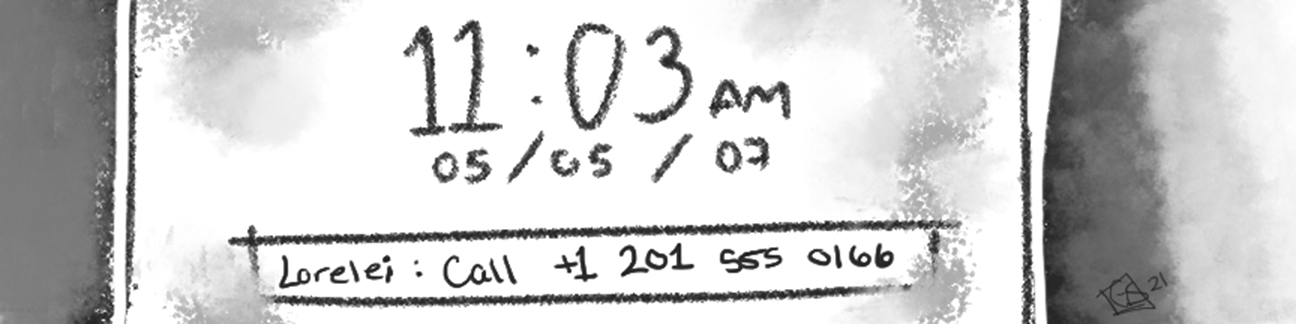 11:03 AM
05/05/07
Lorelei: Call +1 201 555 0166
21